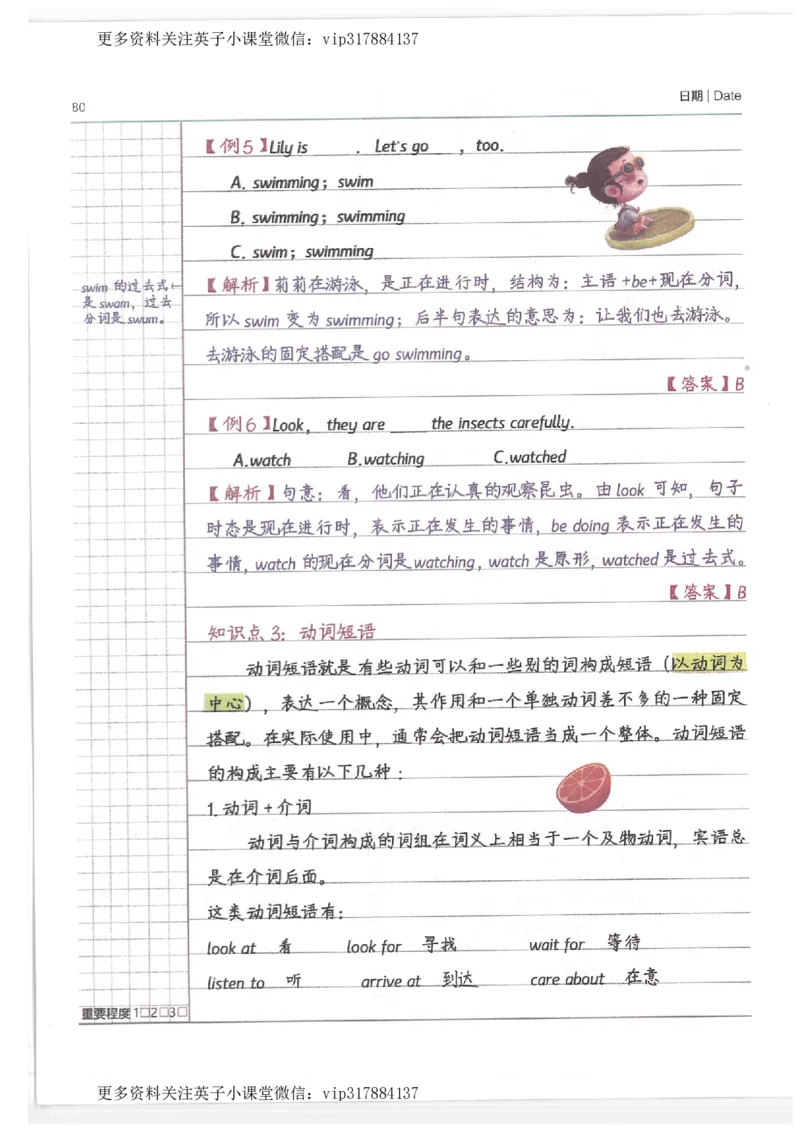 更多资料关注英子小课堂微信：vip317884137
80
日期 | Date
【例5】Lily is ____. Let's go ____, too.
A. swimming；swim
B. swimming；swimming
C. swim；swimming
swim 的过去式
是 swam，过去
分词是 swum。
【解析】莉莉在游泳，是正在进行时，结构为：主语+be+现在分词，
所以 swim 变为 swimming；后半句表达的意思为：让我们也去游泳。
去游泳的固定搭配是 go swimming。
【答案】B
【例6】Look， they are ____ the insects carefully.
A.watch B.watching C.watched
【解析】句意：看，他们正在认真的观察昆虫。由 look 可知，句子
时态是现在进行时，表示正在发生的事情，be doing 表示正在发生的
事情，watch 的现在分词是 watching，watch 是原形，watched 是过去式。
【答案】B
知识点 3：动词短语
动词短语就是有些动词可以和一些别的词构成短语（以动词为
中心），表达一个概念，其作用和一个单独动词差不多的一种固定
搭配。在实际使用中，通常会把动词短语当成一个整体。动词短语
的构成主要有以下几种：
1.动词+介词
动词与介词构成的词组在词义上相当于一个及物动词，宾语总
是在介词后面。
这类动词短语有：
look at 看 look for 寻找 wait for 等待
listen to 听 arrive at 到达 care about 在意
重要程度 1□2□3□
更多资料关注英子小课堂微信：vip317884137